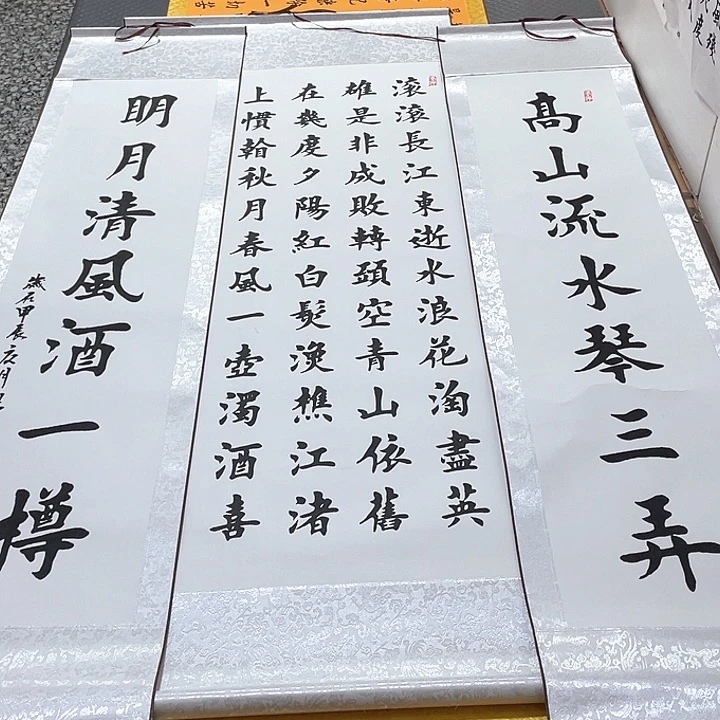 髙山流水琴三弄
滚滚長江東逝水浪花淘盡英
雄是非成敗轉頭空青山依舊
在幾度夕陽紅白髮漁樵江渚
上慣翰秋月春風一壺濁酒喜
明月清風酒一樽
歲在甲辰